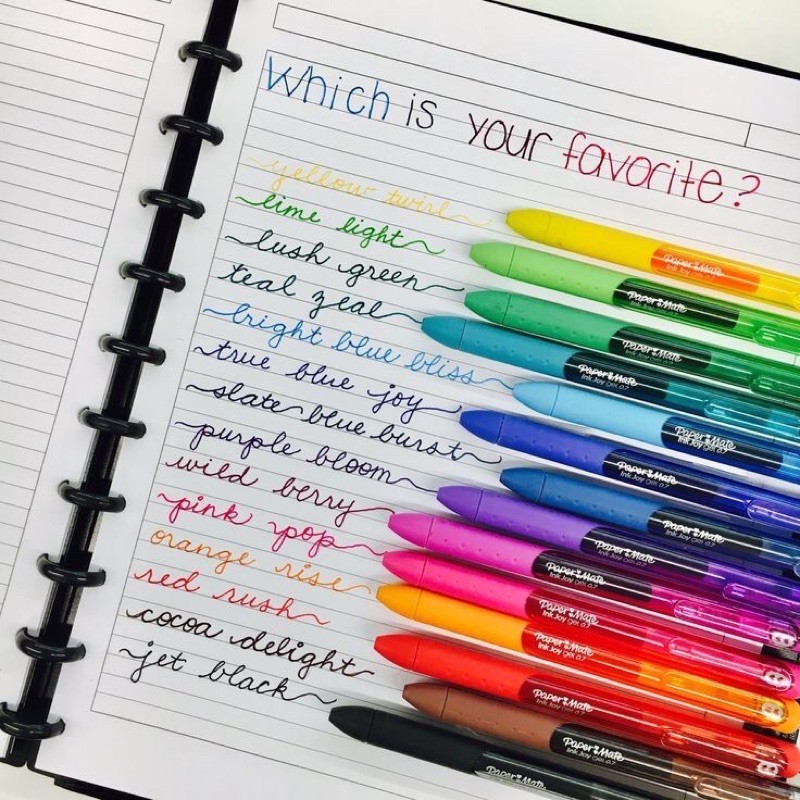 Which is your favorite?
yellow twirl
lime light
lush green
teal zeal
bright blue bliss
true blue joy
slate blue burst
purple bloom
wild berry
pink pop
orange rise
red rush
cocoa delight
jet black
Paper Mate
InkJoy Gel 0.7
Paper Mate
InkJoy Gel 0.7
Paper Mate
InkJoy Gel 0.7
Paper Mate
InkJoy Gel 0.7
Paper Mate
InkJoy Gel 0.7
Paper Mate
InkJoy Gel 0.7
Paper Mate
InkJoy Gel 0.7
Paper Mate
InkJoy Gel 0.7
Paper Mate
InkJoy Gel 0.7
Paper Mate
InkJoy Gel 0.7
Paper Mate
InkJoy Gel 0.7
Paper Mate
InkJoy Gel 0.7
Paper Mate
InkJoy Gel 0.7
Paper Mate
InkJoy Gel 0.7